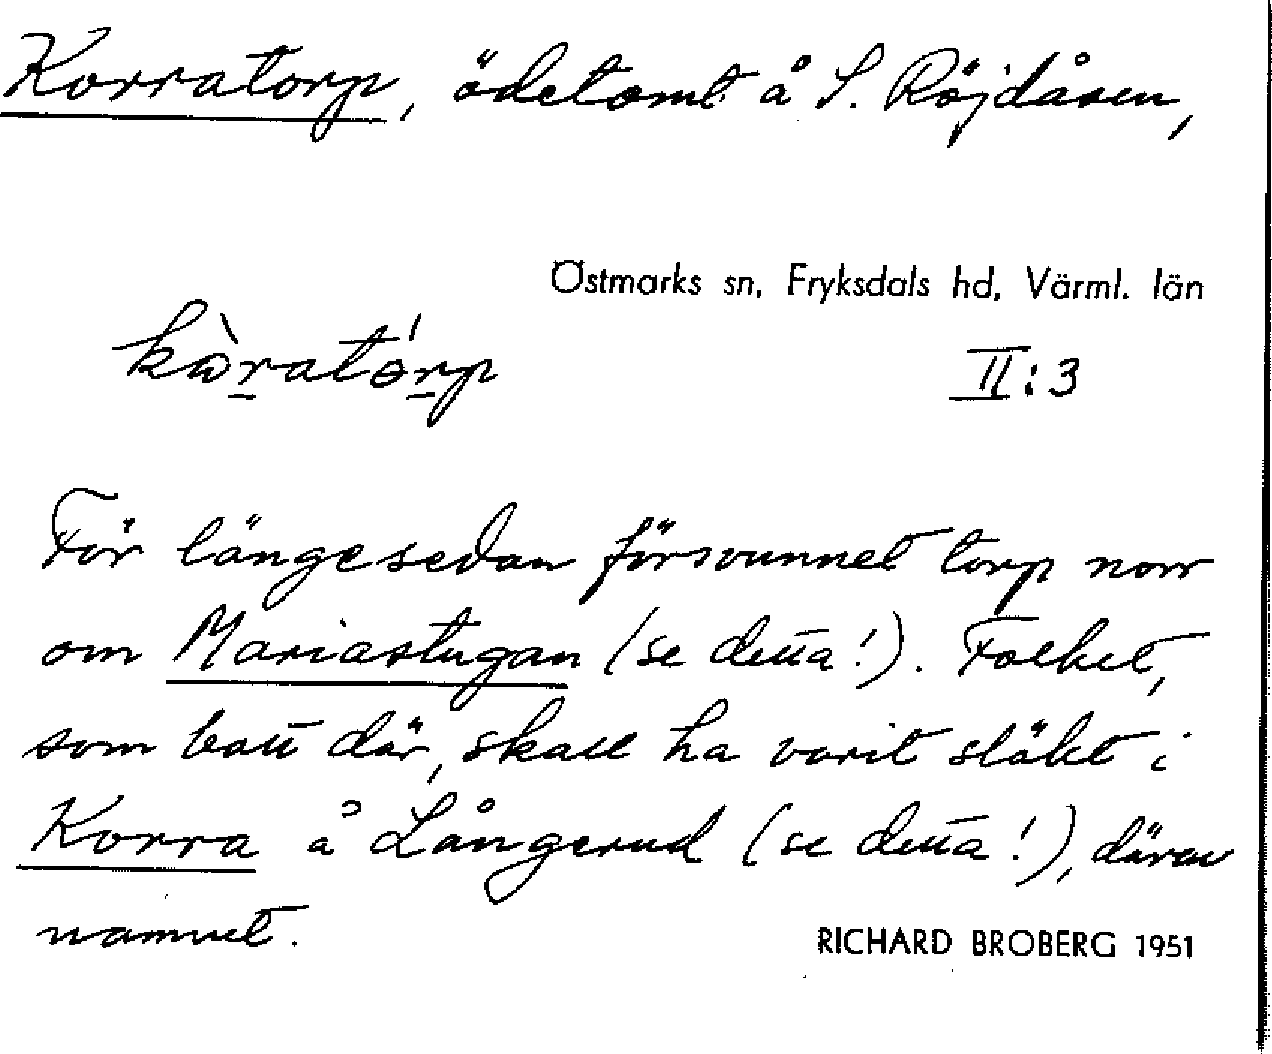 Korratorp, ödetomt å S. Röjdåsen,
Östmarks sn, Fryksdals hd, Värml. län
kɷ̀ratórp
II:3
För längesedan försvunnet torp norr
om Mariastugan (se detta!). Folket,
som bott där, skall ha varit släkt i
Korra å Långerud (se detta!), därav
namnet.
RICHARD BROBERG 1951